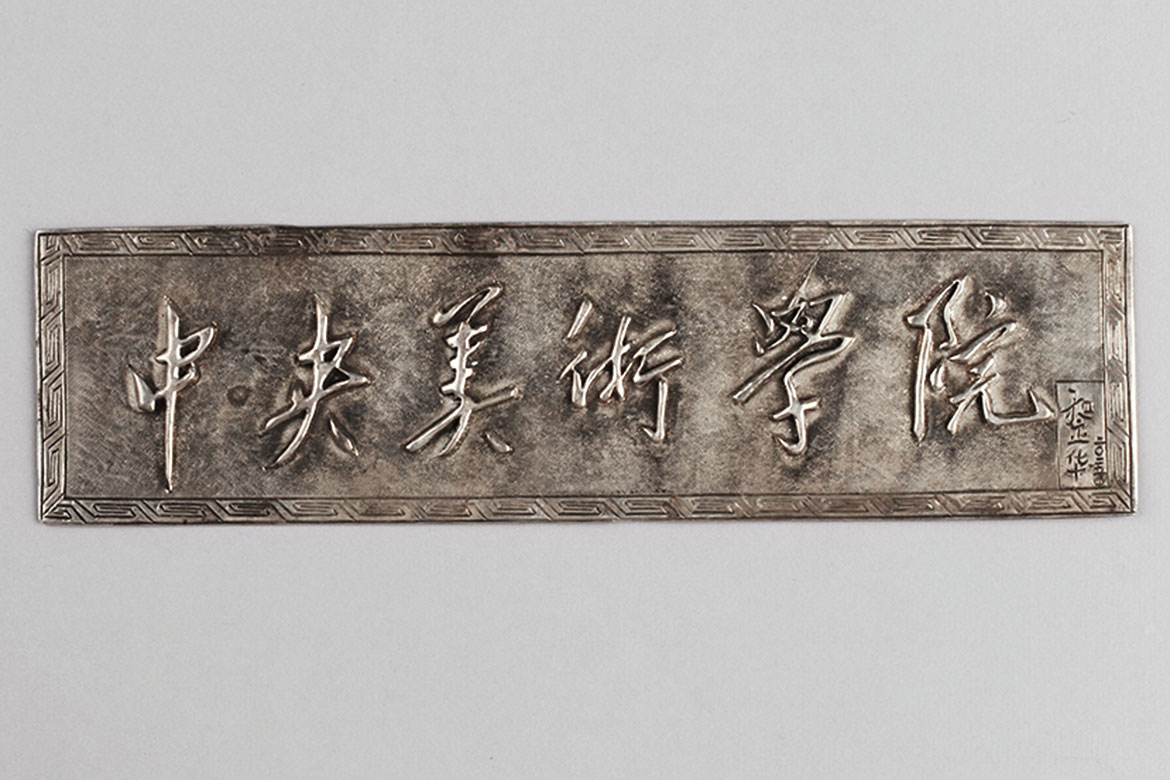 中央美術學院